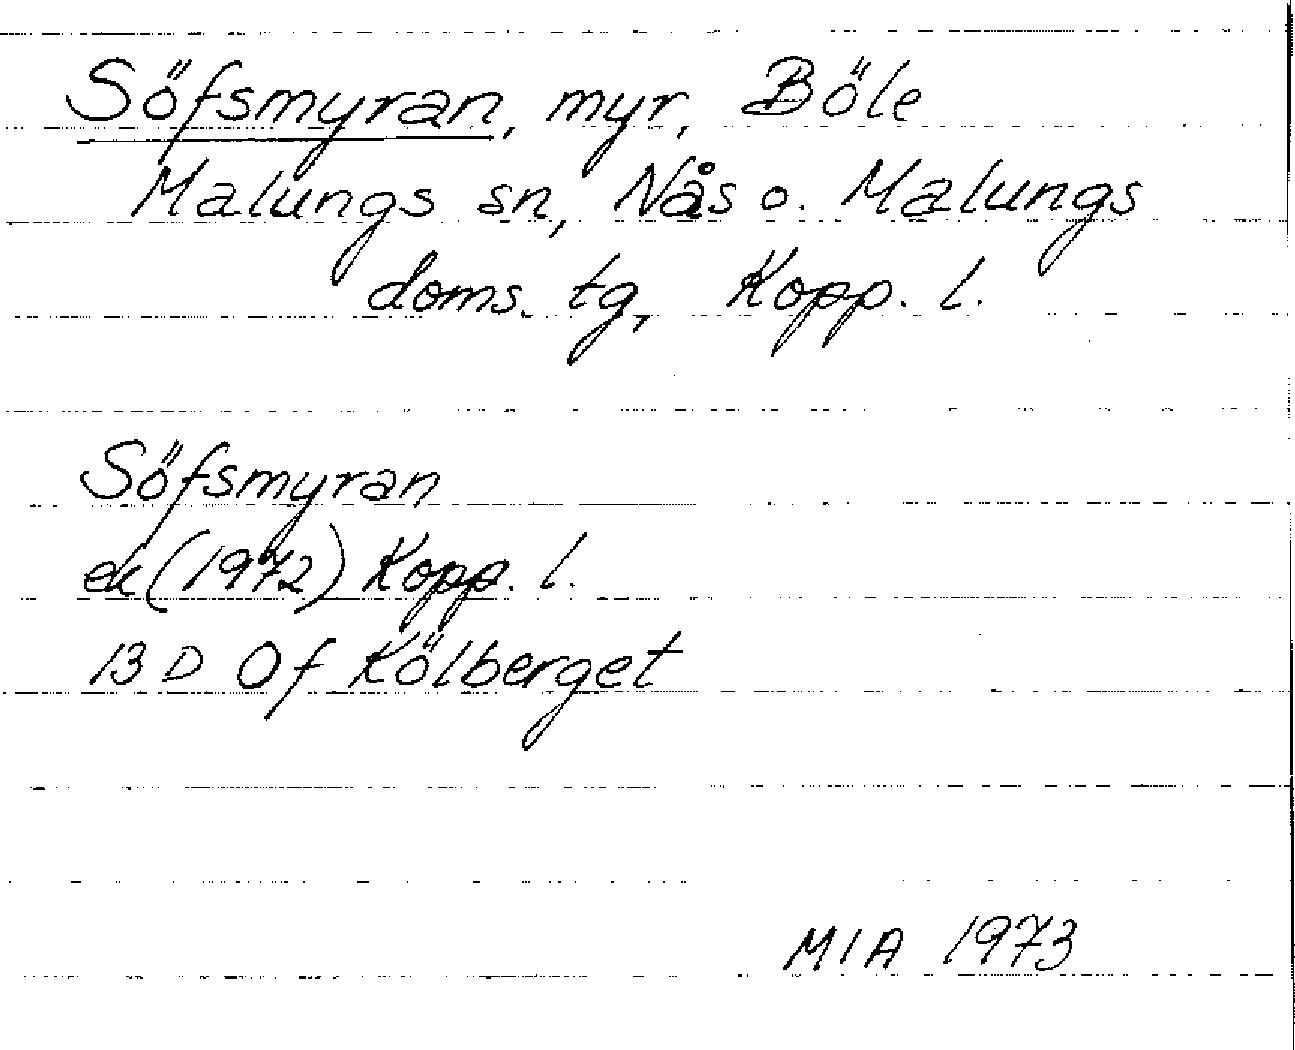 Söfsmyran, myr, Böle
Malungs sn, Nås o. Malungs
doms. tg, Kopp. l.
Söfsmyran
ek (1972) Kopp. l.
13 D 0f Kölberget
MIA 1973